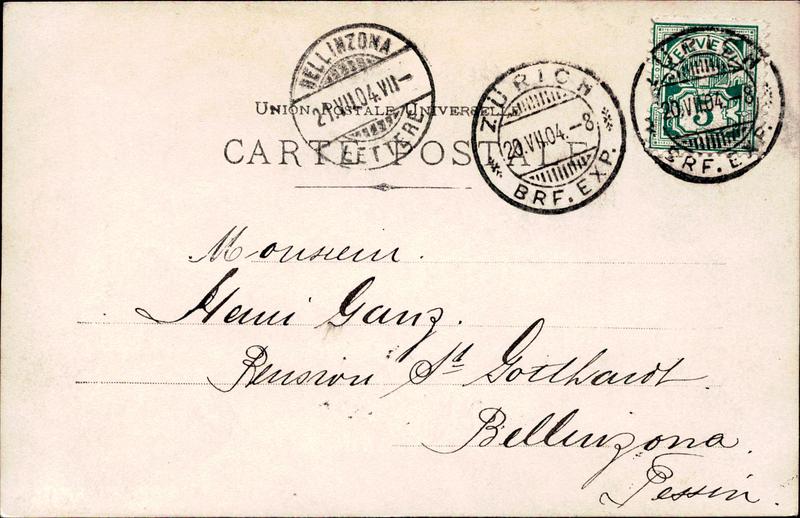 BELLINZONA
21.VII.04.VII-
LETTERE
ZÜRICH
20.VII.04.-8
BRF. EXP.
HELVETIA
5
20.VII.04.-8
BRF. EXP.
UNION POSTALE UNIVERSELLE
CARTE POSTALE
Monsieur
Henri Ganz.
Pension St Gotthardt.
Bellinzona.
Tessin.